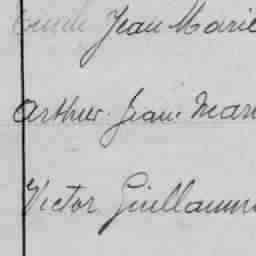 Jean Marie
Arthur Jean Mari
Victor Guillaum